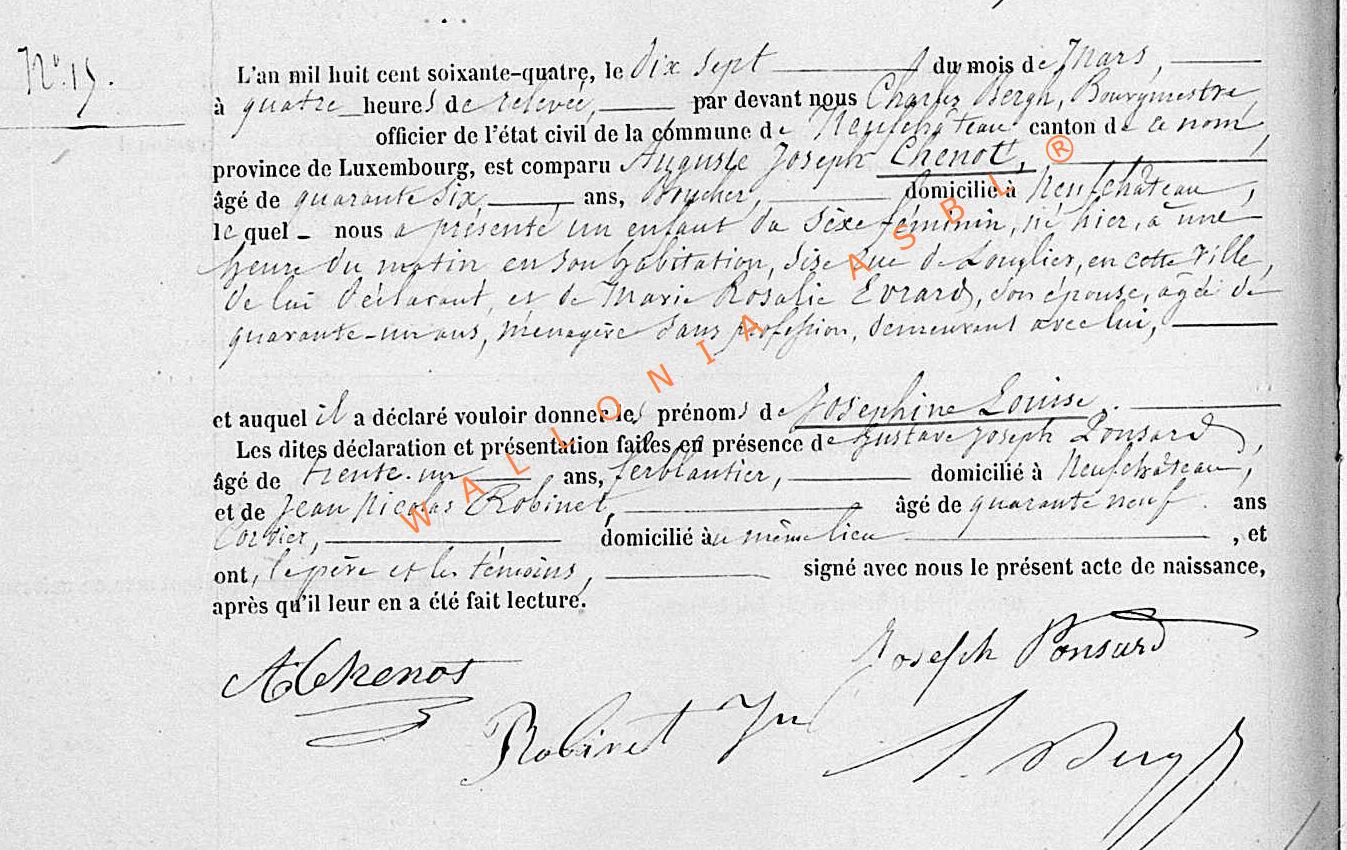 N°. 15.
L'an mil huit cent soixante-quatre, le dix sept du mois de Mars,
à quatre heures de relevée, par devant nous Charles Bergh, Bourgmestre,
officier de l'état civil de la commune de Neufchâteau canton de ce nom,
province de Luxembourg, est comparu Auguste Joseph Chenot,
âgé de quarante six ans, Boucher, domicilié à Neufchâteau,
lequel nous a présenté un enfant du sexe féminin, né hier, à une
heure du matin en son habitation, sise rue de Longlier, en cette ville,
de lui déclarant, et de Marie Rosalie Evrard, son épouse, âgée de
quarante-un ans, ménagère sans profession, demeurant avec lui,
et auquel il a déclaré vouloir donner les prénoms de Josephine Louise.
Les dites déclaration et présentation faites en présence de Gustave Joseph Ponsard,
âgé de trente-un ans, ferblantier, domicilié à Neufchâteau,
et de Jean Nicolas Robinet, âgé de quarante neuf ans
Cordier, domicilié au même lieu, et
ont, le père et les témoins, signé avec nous le présent acte de naissance,
après qu'il leur en a été fait lecture.
AChenot
Joseph Ponsard
Robinet
WALLONIA ASBL ®